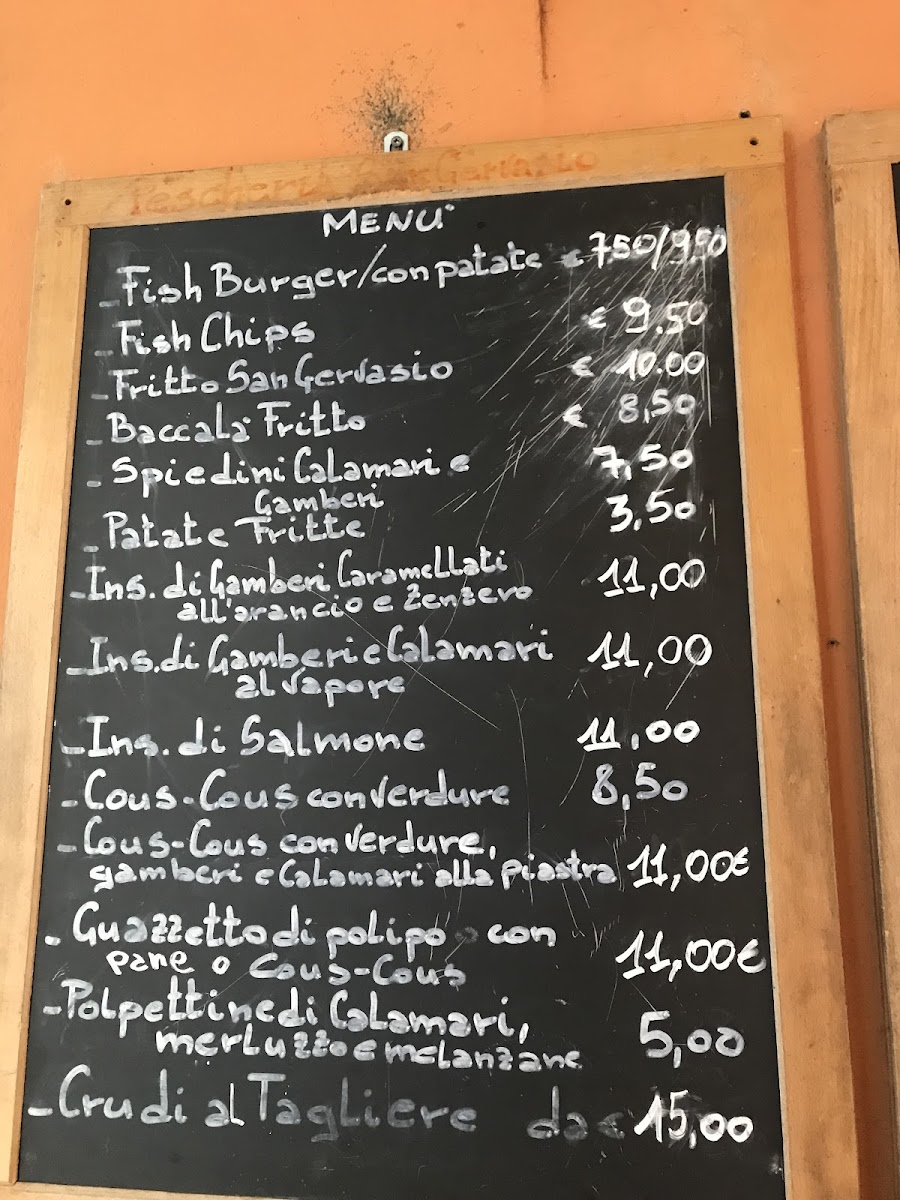 Pescheria San Gervasio
MENU'
- Fish Burger/con patate € 7.50/9.50
- Fish Chips € 9.50
- Fritto San Gervasio € 10.00
- Baccalà Fritto € 8,50
- Spiedini Calamari e 7,50
Gamberi
- Patate Fritte 3,50
- Ins. di Gamberi Caramellati 11,00
all'arancio e Zenzero
- Ins. di Gamberi e Calamari 11,00
al vapore
- Ins. di Salmone 11,00
- Cous-Cous con verdure 8,50
- Cous-Cous con verdure,
gamberi e Calamari alla piastra 11,00€
- Guazzetto di polipo con
pane o Cous-Cous 11,00€
- Polpettine di Calamari,
merluzzo e melanzane 5,00
- Crudi al Tagliere da € 15,00